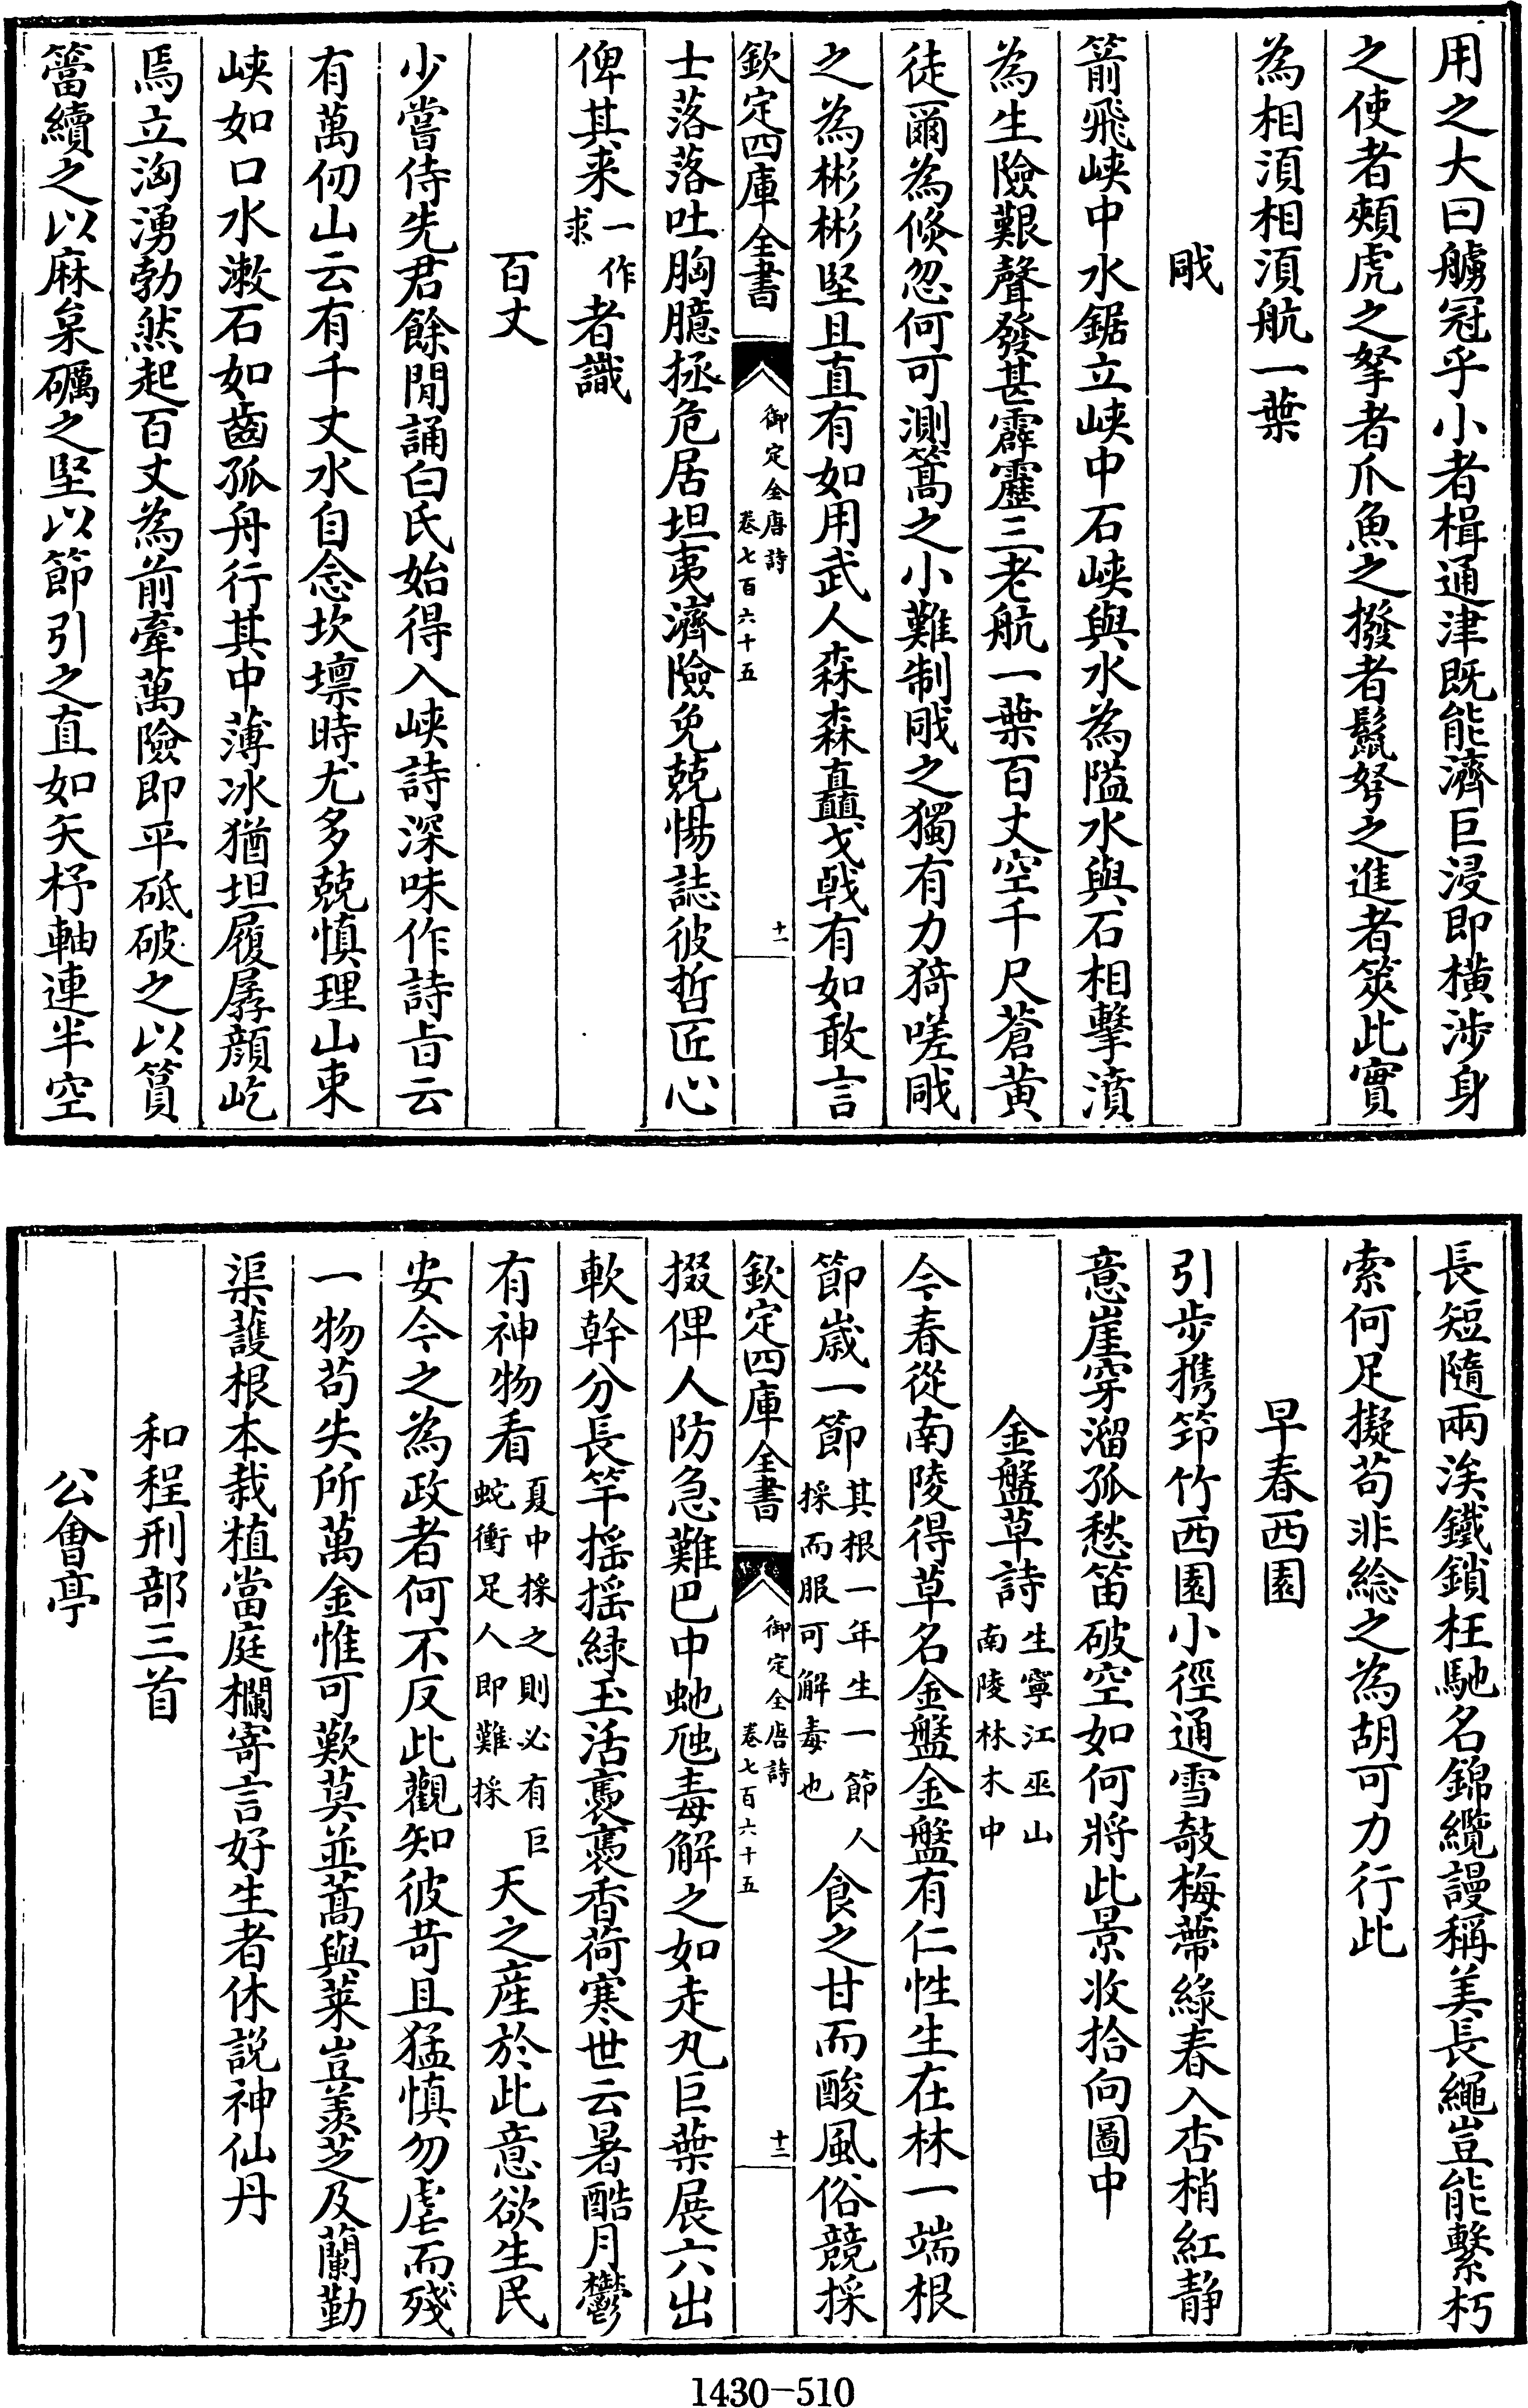 用之大曰艣冠乎小者楫通津既能濟巨浸即橫涉身
之使者頰虎之拏者爪魚之撥者鬣弩之進者筴此實
為相湏相湏航一葉
戙
箭飛峽中水鋸立峽中石峽與水為隘水與石相擊濆
為生險艱聲發甚霹靂三老航一葉百丈空千尺蒼黃
徒爾為倐忽何可測篙之小難制戙之獨有力猗嗟戙
之為彬彬堅且直有如用武人森森矗戈㦸有如敢言
欽定四庫全書
御定全唐詩
卷七百六十五
十一
士落落吐胸臆拯危居坦夷濟險免兢惕誌彼哲匠心
俾其来一作求者識
百丈
少嘗侍先君餘閒誦白氏始得入峽詩深味作詩旨云
有萬仞山云有千丈水自念坎壈時尤多兢慎理山束
峽如口水漱石如齒孤舟行其中薄冰猶坦履孱顔屹
焉立洶湧勃然起百丈為前牽萬險即平砥破之以篔
簹續之以麻枲礪之堅以節引之直如矢杼軸連半空
長短隨兩涘鐵鎖枉馳名錦纜謾稱美長繩豈能繫朽
索何足擬苟非綜之為胡可力行此
早春西園
引步攜筇竹西園小徑通雪敲梅蔕綠春入杏梢紅静
意崖穿溜孤愁笛破空如何將此景收拾向圖中
金盤草詩生寧江巫山南陵林木中
今春從南陵得草名金盤金盤有仁性生在林一端根
節嵗一節其根一年生一節人採而服可解毒也食之甘而酸風俗競採
欽定四庫全書
御定全唐詩
卷七百六十五
十二
掇俾人防急難巴中虵虺毒解之如走丸巨葉展六出
軟幹分長竿摇摇緑玉活裊裊香荷寒世云暑酷月鬱
有神物看夏中採之則必有巨蛇衝足人即難採天之産於此意欲生民
安今之為政者何不反此觀知彼苛且猛慎勿虐而殘
一物苟失所萬金惟可歎莫並蒿與萊豈羨芝及蘭勤
渠䕶根本栽植當庭欄寄言好生者休説神仙丹
和程刑部三首
公會亭
1430-510